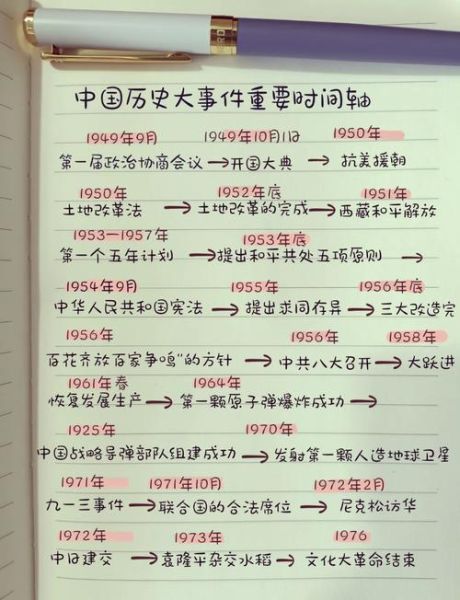 中国历史大事件重要时间轴
1949年9月 1949年10月1日 1950年
第一届政治协商会议→开国大典→抗美援朝
1950年 1952年底 1951年
土地改革法→土地改革的完成→西藏和平解放
1953—1957年 1953年底
第一个五年计划→提出和平共处五项原则→
1954年9月 1955年 1956年底
中华人民共和国宪法→提出求同存异→三大改造完
1956年 1956年 1958年
百花齐放百家争鸣"的方针→中共八大召开→大跃进
1961年春 1964年
恢复发展生产→第一颗原子弹爆炸成功→
1925年 1970年
中国战略导弹部队组建成功→发射第一颗人造地球卫星
1971年 1971年10月 1972年2月
九一三事件→联合国的合法席位→尼克松访华
1972年 1973年 1976
中日建交→袁隆平杂交水稻→文化大革命结束